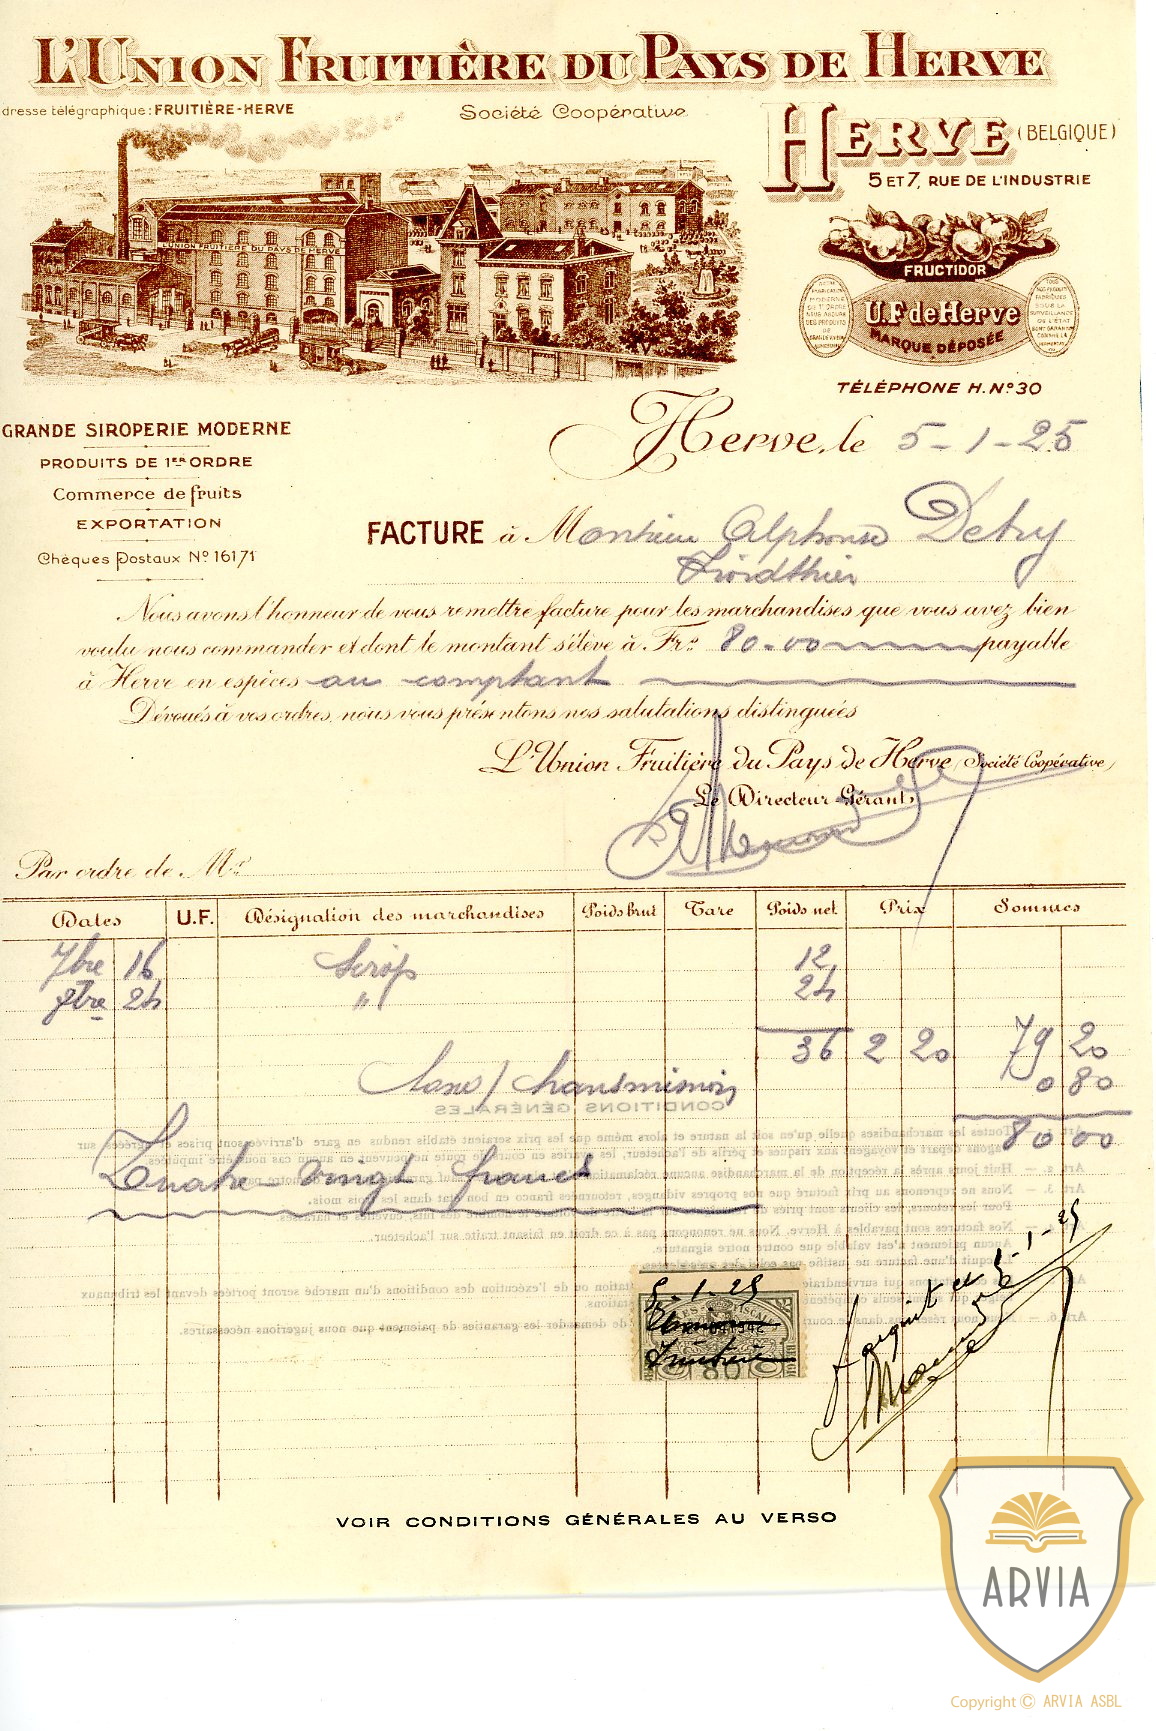 L'UNION FRUITIÈRE DU PAYS DE HERVE
dresse télégraphique: FRUITIÈRE-HERVE
Société Coopérative
HERVE (BELGIQUE)
5 ET 7, RUE DE L'INDUSTRIE
L'UNION FRUITIÈRE DU PAYS DE HERVE
FRUCTIDOR
U.F. de Herve
MARQUE DÉPOSÉE
TÉLÉPHONE H. Nº 30
GRANDE SIROPERIE MODERNE
PRODUITS DE 1ER ORDRE
Commerce de fruits
EXPORTATION
Chèques Postaux Nº 16171
Herve, le 5-1-25
FACTURE à Monsieur Alphonse Detry
Froidthier
Nous avons l'honneur de vous remettre facture pour les marchandises que vous avez bien
voulu nous commander et dont le montant s'élève à Frs 80.00 payable
à Herve en espèces au comptant
Dévoués à vos ordres, nous vous présentons nos salutations distinguées
L'Union Fruitière du Pays de Herve (Société Coopérative)
Le Directeur-Gérant,
Par ordre de Mr
Dates U.F. Désignation des marchandises Poids brut Tare Poids net Prix Sommes
7bre 16 Sirop 12
8bre 24 " 24
36 2 20 79 20
Taxe/transmission 0 80
80 00
Quatre-vingt francs
5-1-25
Union
Fruitière
80
Pour acquit le 5-1-25
VOIR CONDITIONS GÉNÉRALES AU VERSO
ARVIA
Copyright © ARVIA ASBL